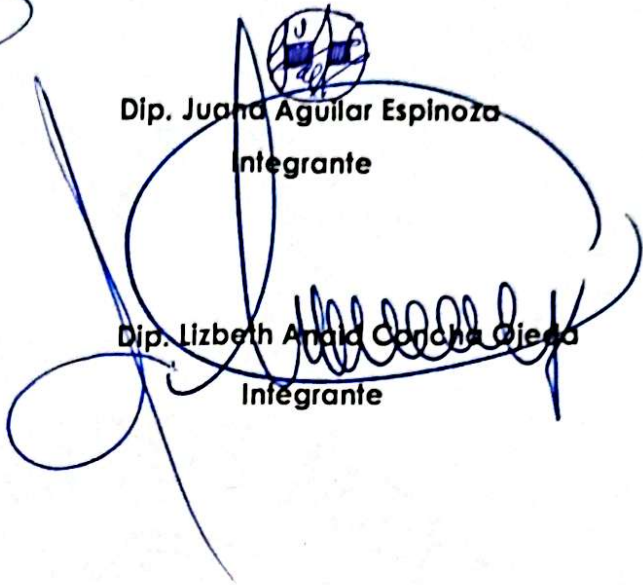 Dip. Juana Aguilar Espinoza
Integrante
Dip. Lizbeth Anaid Concha Ojeda
Integrante